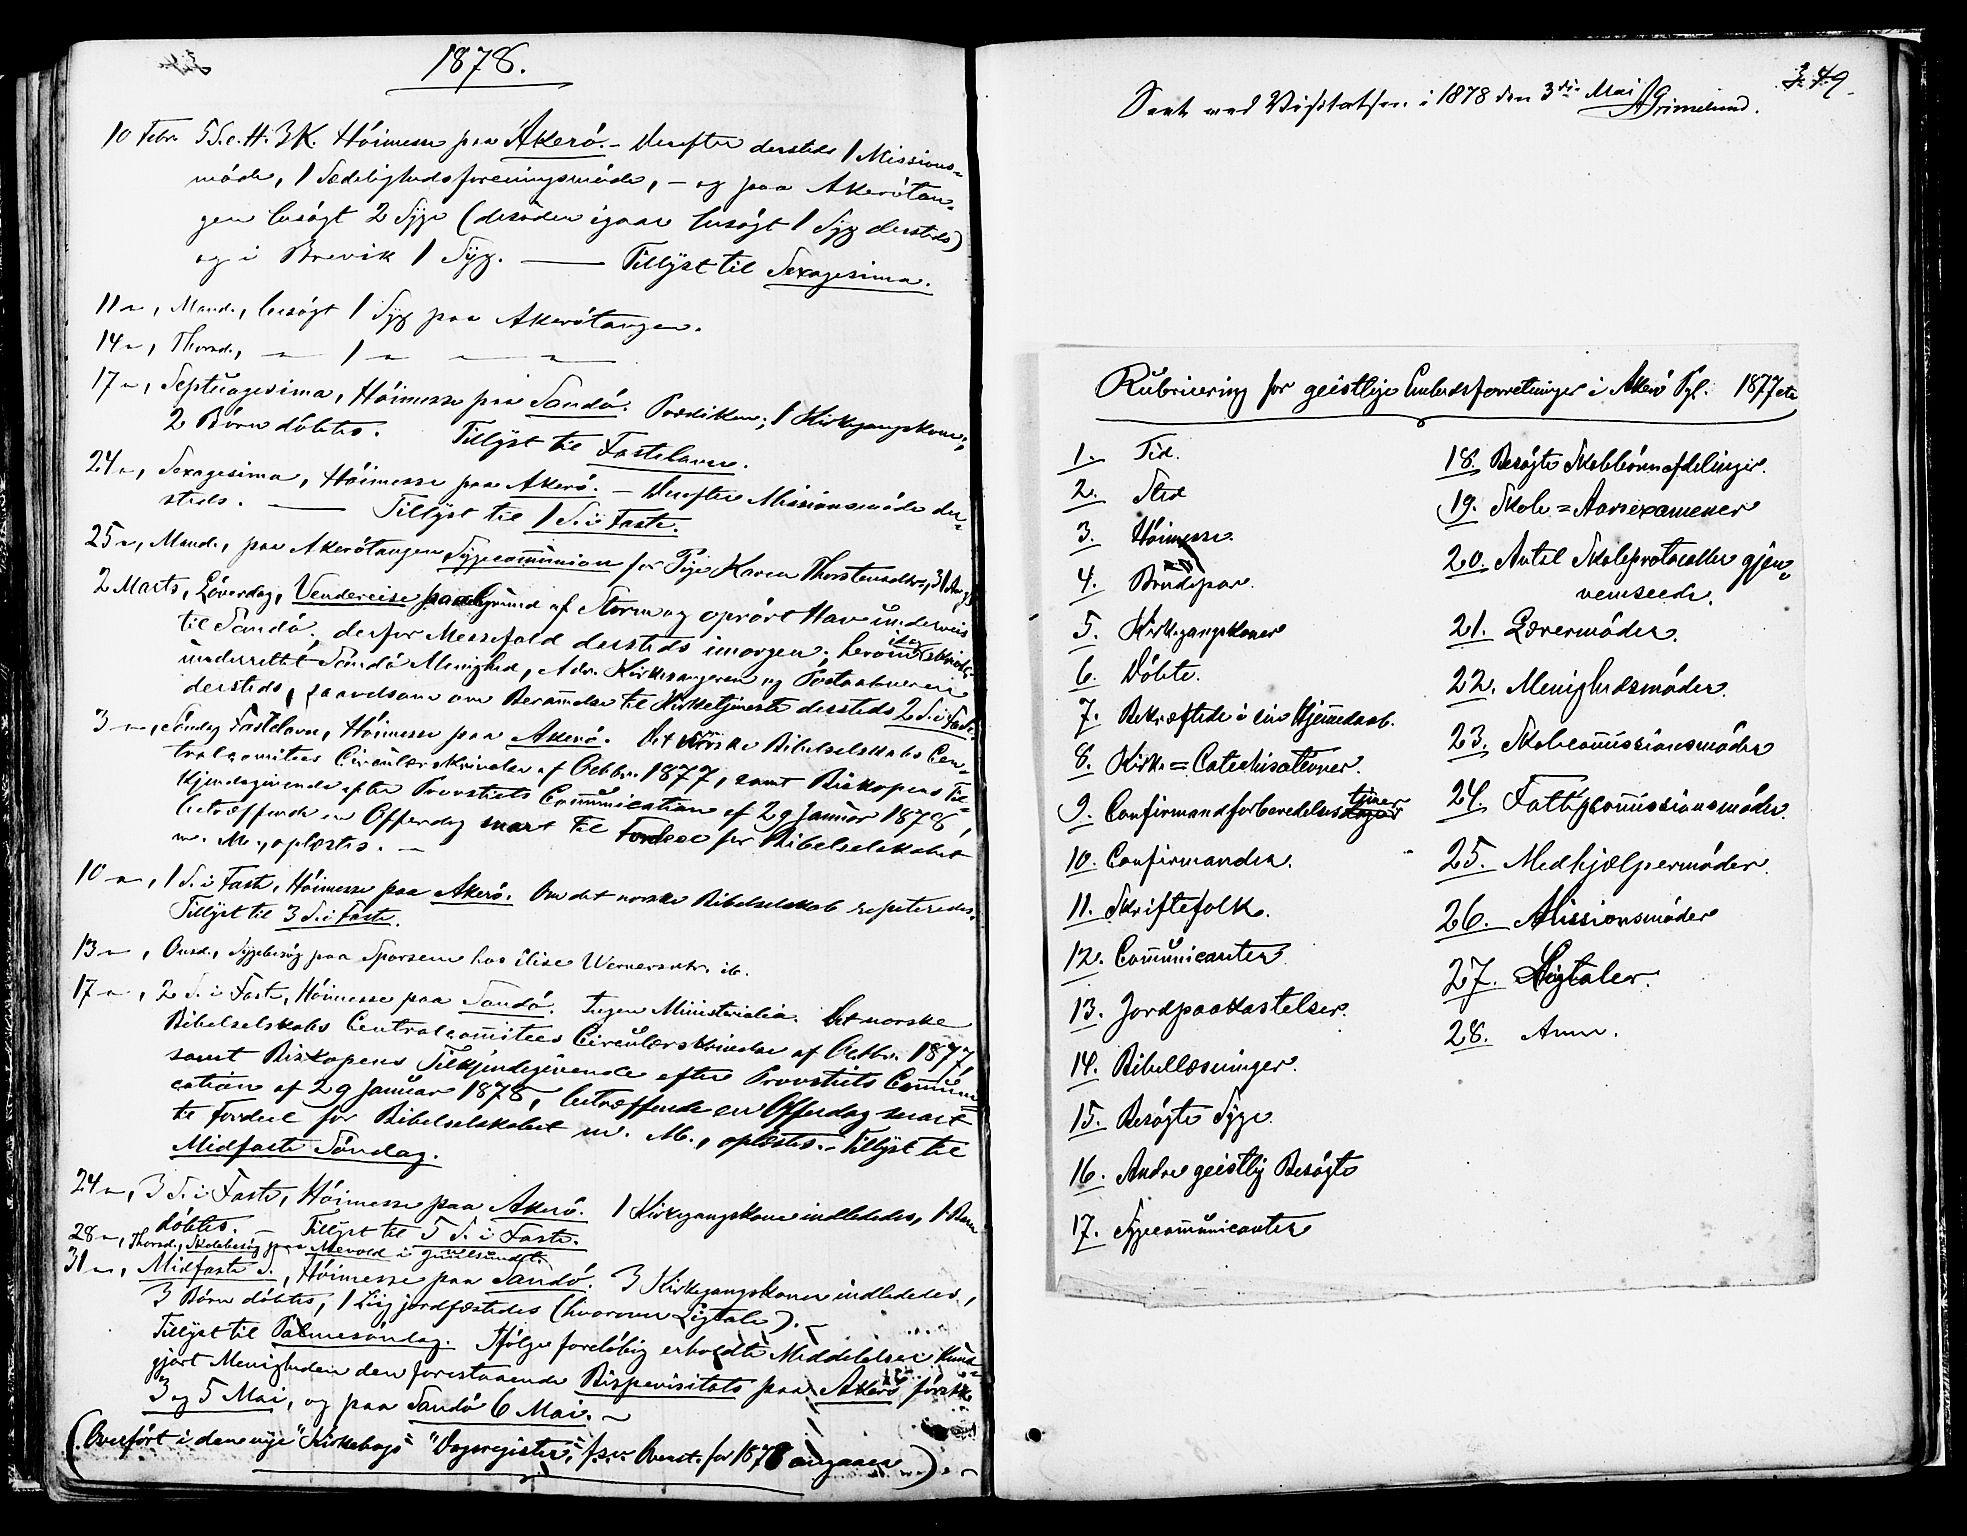 1878.
10 Febr. 5 S. e. H. 3 K. Höimesse paa Akerö. – Derefter dersteds 1 Missions=
möde, 1 Sædelighedsforeningsmöde, – og paa Akerötan=
gen besögt 2 Syge (desuden igaar besögt 1 Syg dersteds)
og i Brevik 1 Syg. — Tillyst til Sexagesima.
11 ", Mand., besögt 1 Syg paa Akerötangen.
14 ", Thorsd., — 1 " — —
17 ", Septuagesima, Höimesse paa Sandö. Prædiken; 1 Kirkegangskone;
2 Börn döbtes. Tillyst til Fastelavn.
24 ", Sexagesima, Höimesse paa Akerö. – Derefter Missionsmöde der=
steds. — Tillyst til 1 S. i Faste.
25 ", Mand., paa Akerötangen Sygecommunion for Pige Karen Thorstensdtr., 31 Aar
2 Marts, Löverdag, Vendereise paa Grund af Storm og oprört Hav underveis
til Sandö, derfor Messefald dersteds imorgen; herom idag
underrettet Sandö Menighed, Adr. Kirkesangeren og Postaabneren
dersteds, saavelsom om Berammelse til Kirketjeneste dersteds 2 S. i Faste.
3 ", Söndag Fastelavn, Höimesse paa Akerö. Det norske Bibelselskabs Cen=
tralcomitees Circulærskrivelse af Octbr. 1877, samt Biskopens Til=
kjendegivende efter Provstiets Communication af 29 Januar 1878,
betræffende en Offerdag snart til Fordeel for Bibelselskabet
m. M., oplæstes. –
10 ", 1 S. i Faste, Höimesse paa Akerö. Om det norske Bibelselskab repeteredes.
Tillyst til 3 S. i Faste.
13 ", Onsd., Sygebesög paa Sporsem hos Elise Wernersdtr. ib.
17 ", 2 S. i Faste, Höimesse paa Sandö. Ingen Ministerialia. Det norske
Bibelselskabs Centralcomitees Circulærskrivelse af Octbr. 1877,
samt Biskopens Tilkjendegivende efter Provstiets Communi=
cation af 29 Januar 1878, betræffende en Offerdag snart
til Fordeel for Bibelselskabet m. M., oplæstes. – Tillyst til
Midfaste Söndag.
24 ", 3 S. i Faste, Höimesse paa Akerö. 1 Kirkegangskone indlededes, 1 Barn
döbtes. – Tillyst til 5 S. i Faste.
28 ", Thorsd., Skolebesög paa Mevold i Juulsundet.
31 ", Midfaste S., Höimesse paa Sandö. 3 Kirkegangskoner indlededes,
3 Börn döbtes, 1 Liig jordfæstedes (hvorover Ligtale). –
Tillyst til Palmesöndag. Ifölge forelöbig erholdte Meddelelser kund=
gjort Menigheden den forestaaende Bispevisitats paa Akerö
3 og 5 Mai, og paa Sandö 6 Mai. –
(Overfört i den nye "Kirkebogs" "Dagsregister," for 1878 angaaer)
349.
Seet ved Visitatsen i 1878 den 3die Mai Grimelund.
Rubricering for geistlige Embedsforretninger i Akerö Pgl. 1877 etc
1. Tid.
2. Sted
3. Höimesse.
4. Brudepar.
5. Kirkegangskoner
6. Döbte.
7. Bekræftede i sin Hjemmedaab.
8. Kirke=Catechisationer.
9. Confirmandforberedelsestimer
10. Confirmander.
11. Skriftefolk.
12. Communicanter
13. Jordpaakastelser.
14. Bibellæsninger.
15. Besögte Syge.
16. Andre geistlig Besögte
17. Sygecommunicanter
18. Besögte Skolebörnafdelinger.
19. Skole=Aarsexamener
20. Antal Skoleprotocoller gjen=
nemseede.
21. Læremöder.
22. Menighedsmöder.
23. Skolecommissionsmöder
24. Fattigcommissionsmöder.
25. Medhjælpermöder.
26. Missionsmöder
27. Ligtaler.
28. Anm.